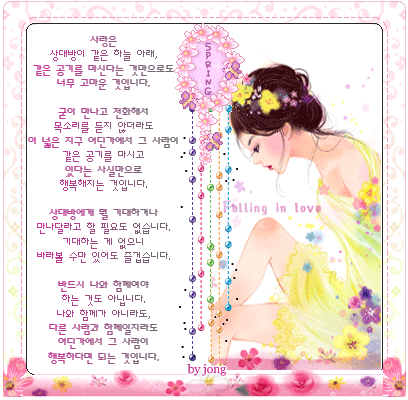 사랑은
상대방이 같은 하늘 아래,
같은 공기를 마신다는 것만으로도
너무 고마운 것입니다.
굳이 만나고 전화해서
목소리를 듣지 않더라도
이 넓은 지구 어딘가에서 그 사람이
같은 공기를 마시고
있다는 사실만으로
행복해지는 것입니다.
상대방에게 뭘 기대하거나
만나달라고 할 필요도 없습니다.
기대하는 게 없으니
바라볼 수만 있어도 즐겁습니다.
반드시 나와 함께여야
하는 것도 아닙니다.
나와 함께가 아니라도,
다른 사람과 함께일지라도
어딘가에서 그 사람이
행복하다면 되는 것입니다.
SPRING
Falling in love
by jong